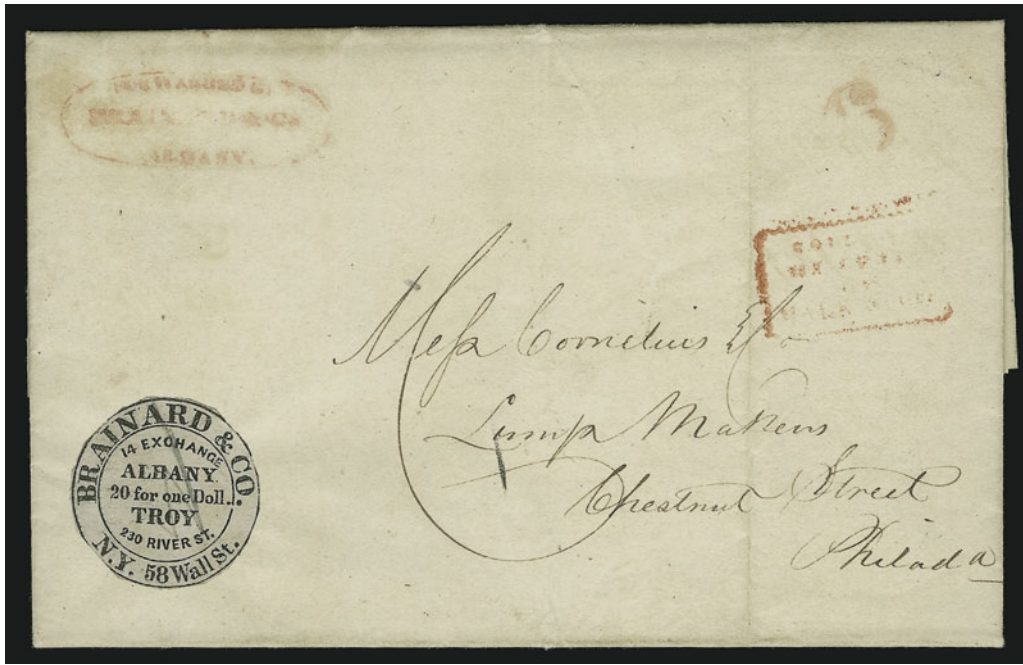 ALBANY.
Mess Cornelius & Co
Lamp Makers
Chestnut Street
Philada
BRAINARD & CO.
14 EXCHANGE
ALBANY
20 for one Doll.
TROY
230 RIVER ST.
N.Y. 58 Wall St.